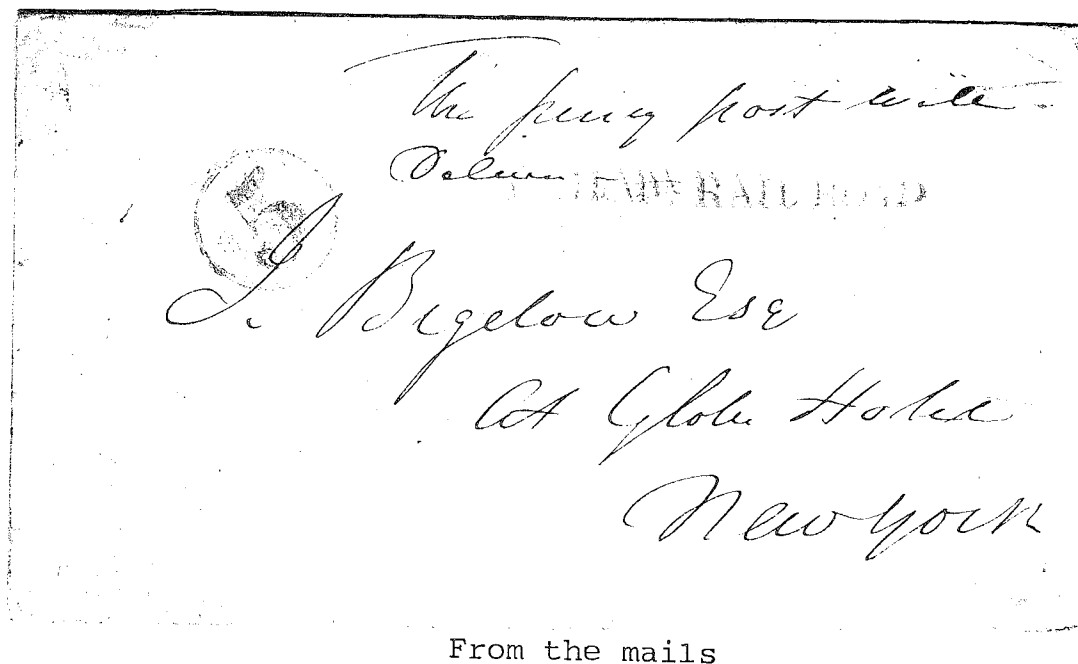 The penny post will
Deliver
5
RAILROAD
J. Bigelow Esq
At Globe Hotel
New York
From the mails